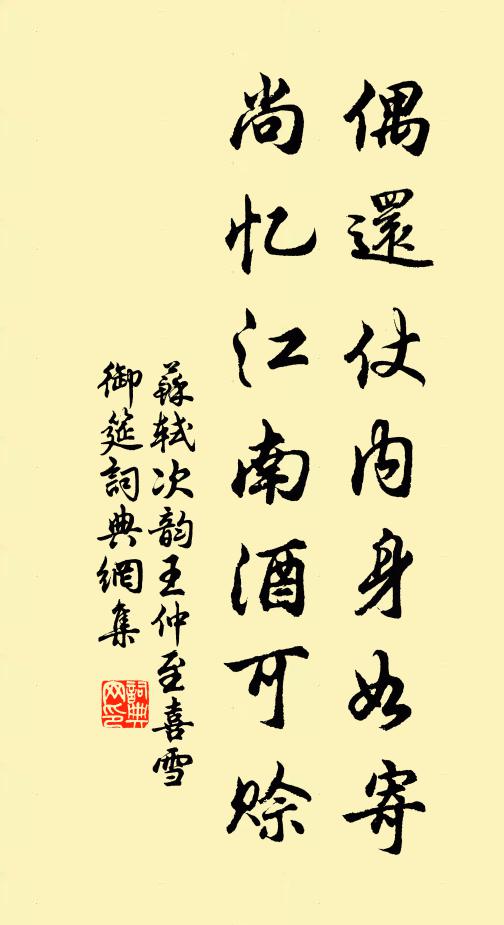 偶還仗内身如寄
尚忆江南酒可赊
蘇軾次韵王仲至喜雪
御筵詞典網集
詞典
网印